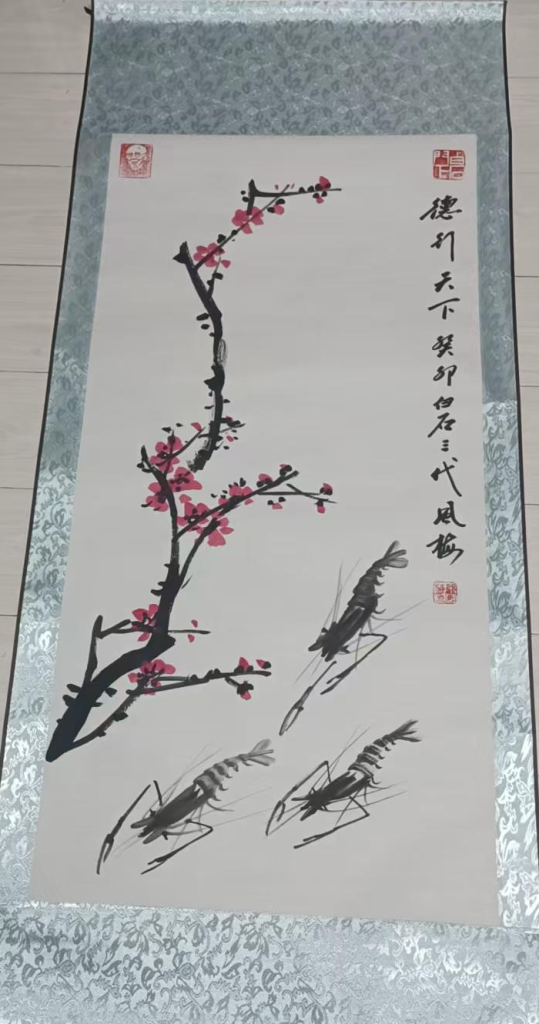 德行天下癸卯白石三代風梅